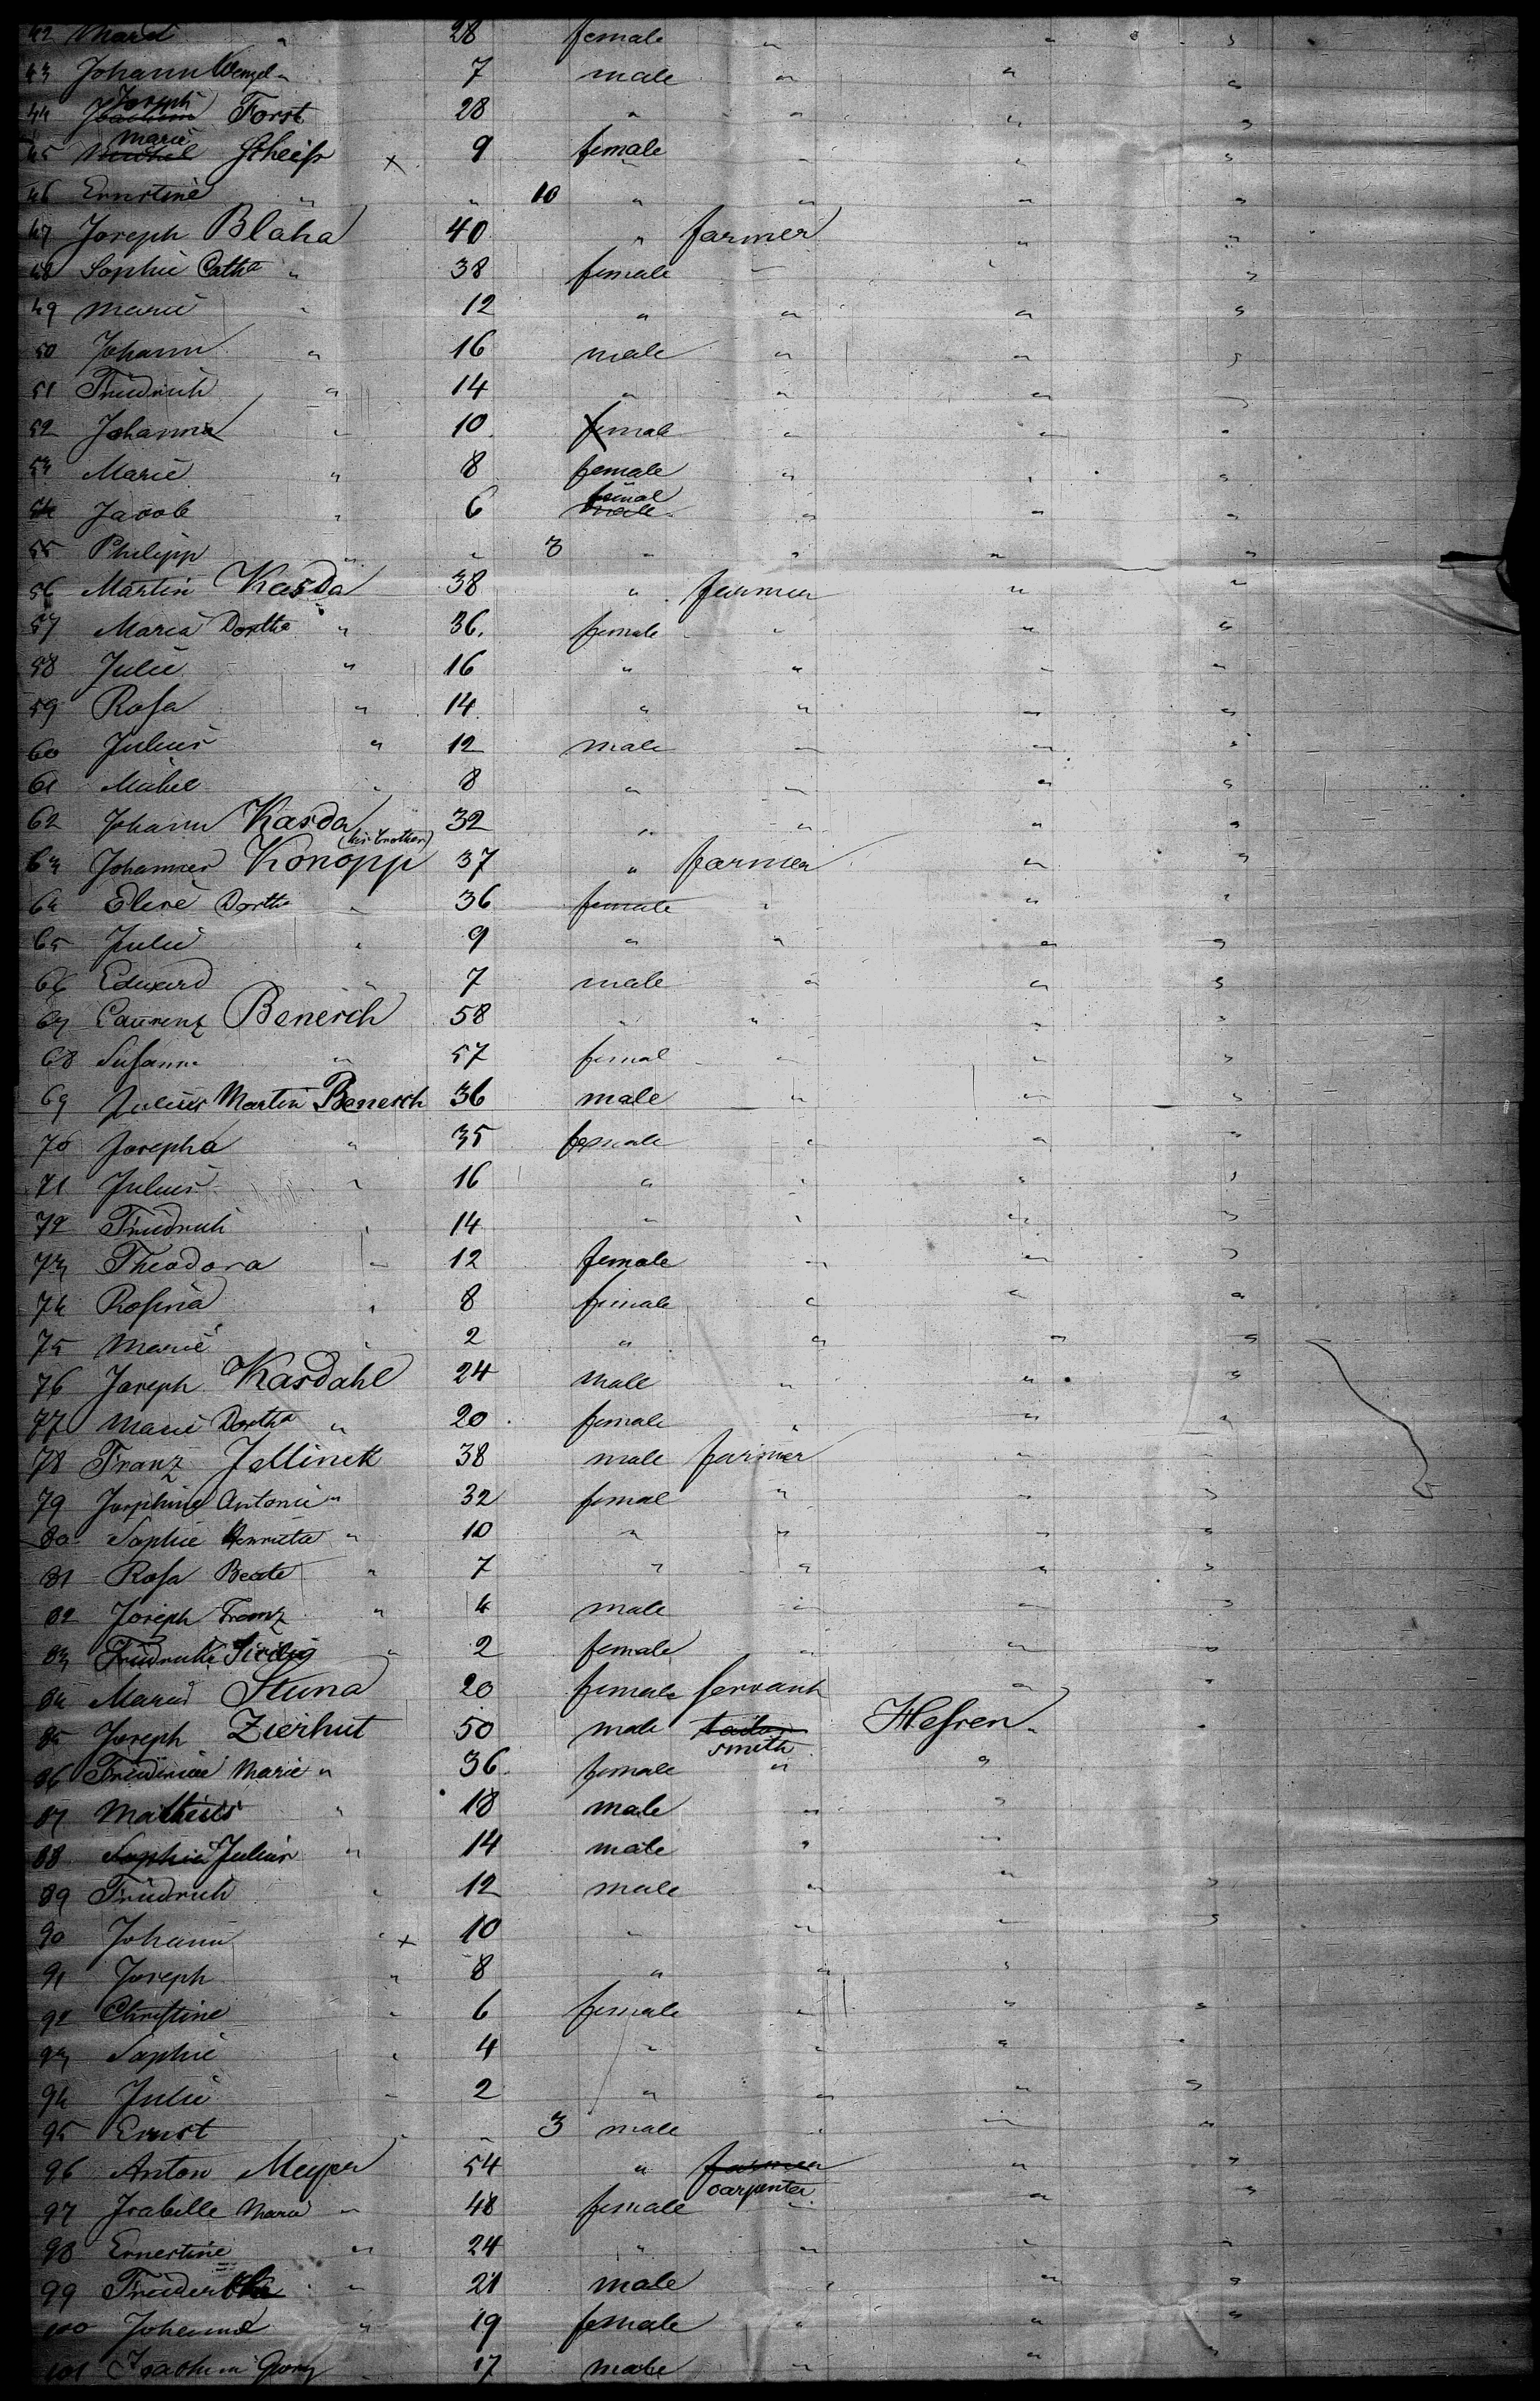 42 Mari " 28 female " " "
43 Johann Wenzel " 7 male " " "
44 Joachim Joseph Forst 28 " " " "
45 Michel Marie Scheiss x 9 female " " "
46 Ernstine " " 10 " " " "
47 Joseph Blaha 40 " farmer " "
48 Sophie Catha " 38 female " " "
49 Marie " 12 " " " "
50 Johann " 16 male " " "
51 Friedrich " 14 " " " "
52 Johanna " 10 female " " "
53 Marie " 8 female " " "
54 Jacob " 6 male femal " " "
55 Philipp " " 3 " " " "
56 Martin Kasda 38 " farmer " "
57 Maria Dortha " 36. female " " "
58 Julie " 16 " " " "
59 Rosa " 14 " " " "
60 Julius " 12 male " " "
61 Michel " 8 " " " "
62 Johann Kasda (his brother) 32 " " " "
63 Johannes Konopp 37 " farmer " "
64 Elene Dortha " 36 female " " "
65 Julie " 9 " " " "
66 Edward " 7 male " " "
67 Laurenz Benesch 58 " " " "
68 Susanna " 57 femal " " "
69 Julius Martin Benesch 36 male " " "
70 Josepha " 35 female " " "
71 Julius " 16 " " " "
72 Friedrich " 14 " " " "
73 Theodora " 12 female " " "
74 Rosina " 8 female " " "
75 Marie " 2 " " " "
76 Joseph Kasdahl 24 male " " "
77 Marie Dortha " 20 female " " "
78 Franz Jellinek 38 male farmer " "
79 Josphine Antonie " 32 femal " " "
80 Sophie Henrietta " 10 " " " "
81 Rosa Beate " 7 " " " "
82 Joseph Franz " 4 male " " "
83 Friedricke " 2 female " " "
84 Marie Stuna 20 female servant " "
85 Joseph Zierhut 50 male tailor smith Hessen "
86 Marie " 36 female " "
87 Matheus " 18 male " "
88 Sophie Julius " 14 male " "
89 Friedrich " 12 male " " "
90 Johann " x 10 " " " "
91 Joseph " 8 " " "
92 Christine " 6 female " " "
93 Sophie " 4 " " " "
94 Julie " 2 " " " "
95 Ernst " " 3 male " " "
96 Anton Meyer 54 " farmer carpenter " "
97 Isabelle Maria " 48 female " " "
98 Ernestine " 24 " " " "
99 " 21 male " " "
100 Johanne " 19 female " " "
101 Joachim Georg " 17 male " " "